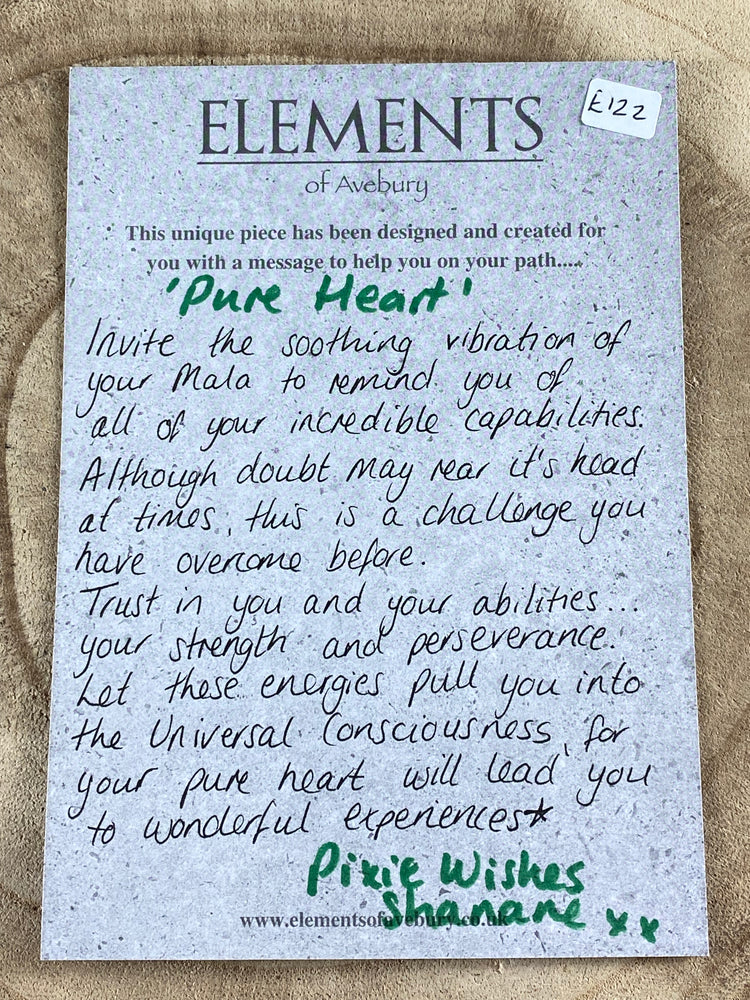 ELEMENTS
£122
of Avebury
This unique piece has been designed and created for
you with a message to help you on your path....
'Pure Heart'
Invite the soothing vibration of
your Mala to remind you of
all of your incredible capabilities.
Although doubt may rear it's head
at times, this is a challenge you
have overcome before.
Trust in you and your abilities...
your strength and perseverance.
Let these energies pull you into
the Universal Consciousness, for
your pure heart will lead you
to wonderful experiences*
Pixie Wishes
Shanane xx
www.elementsofavebury.co.uk